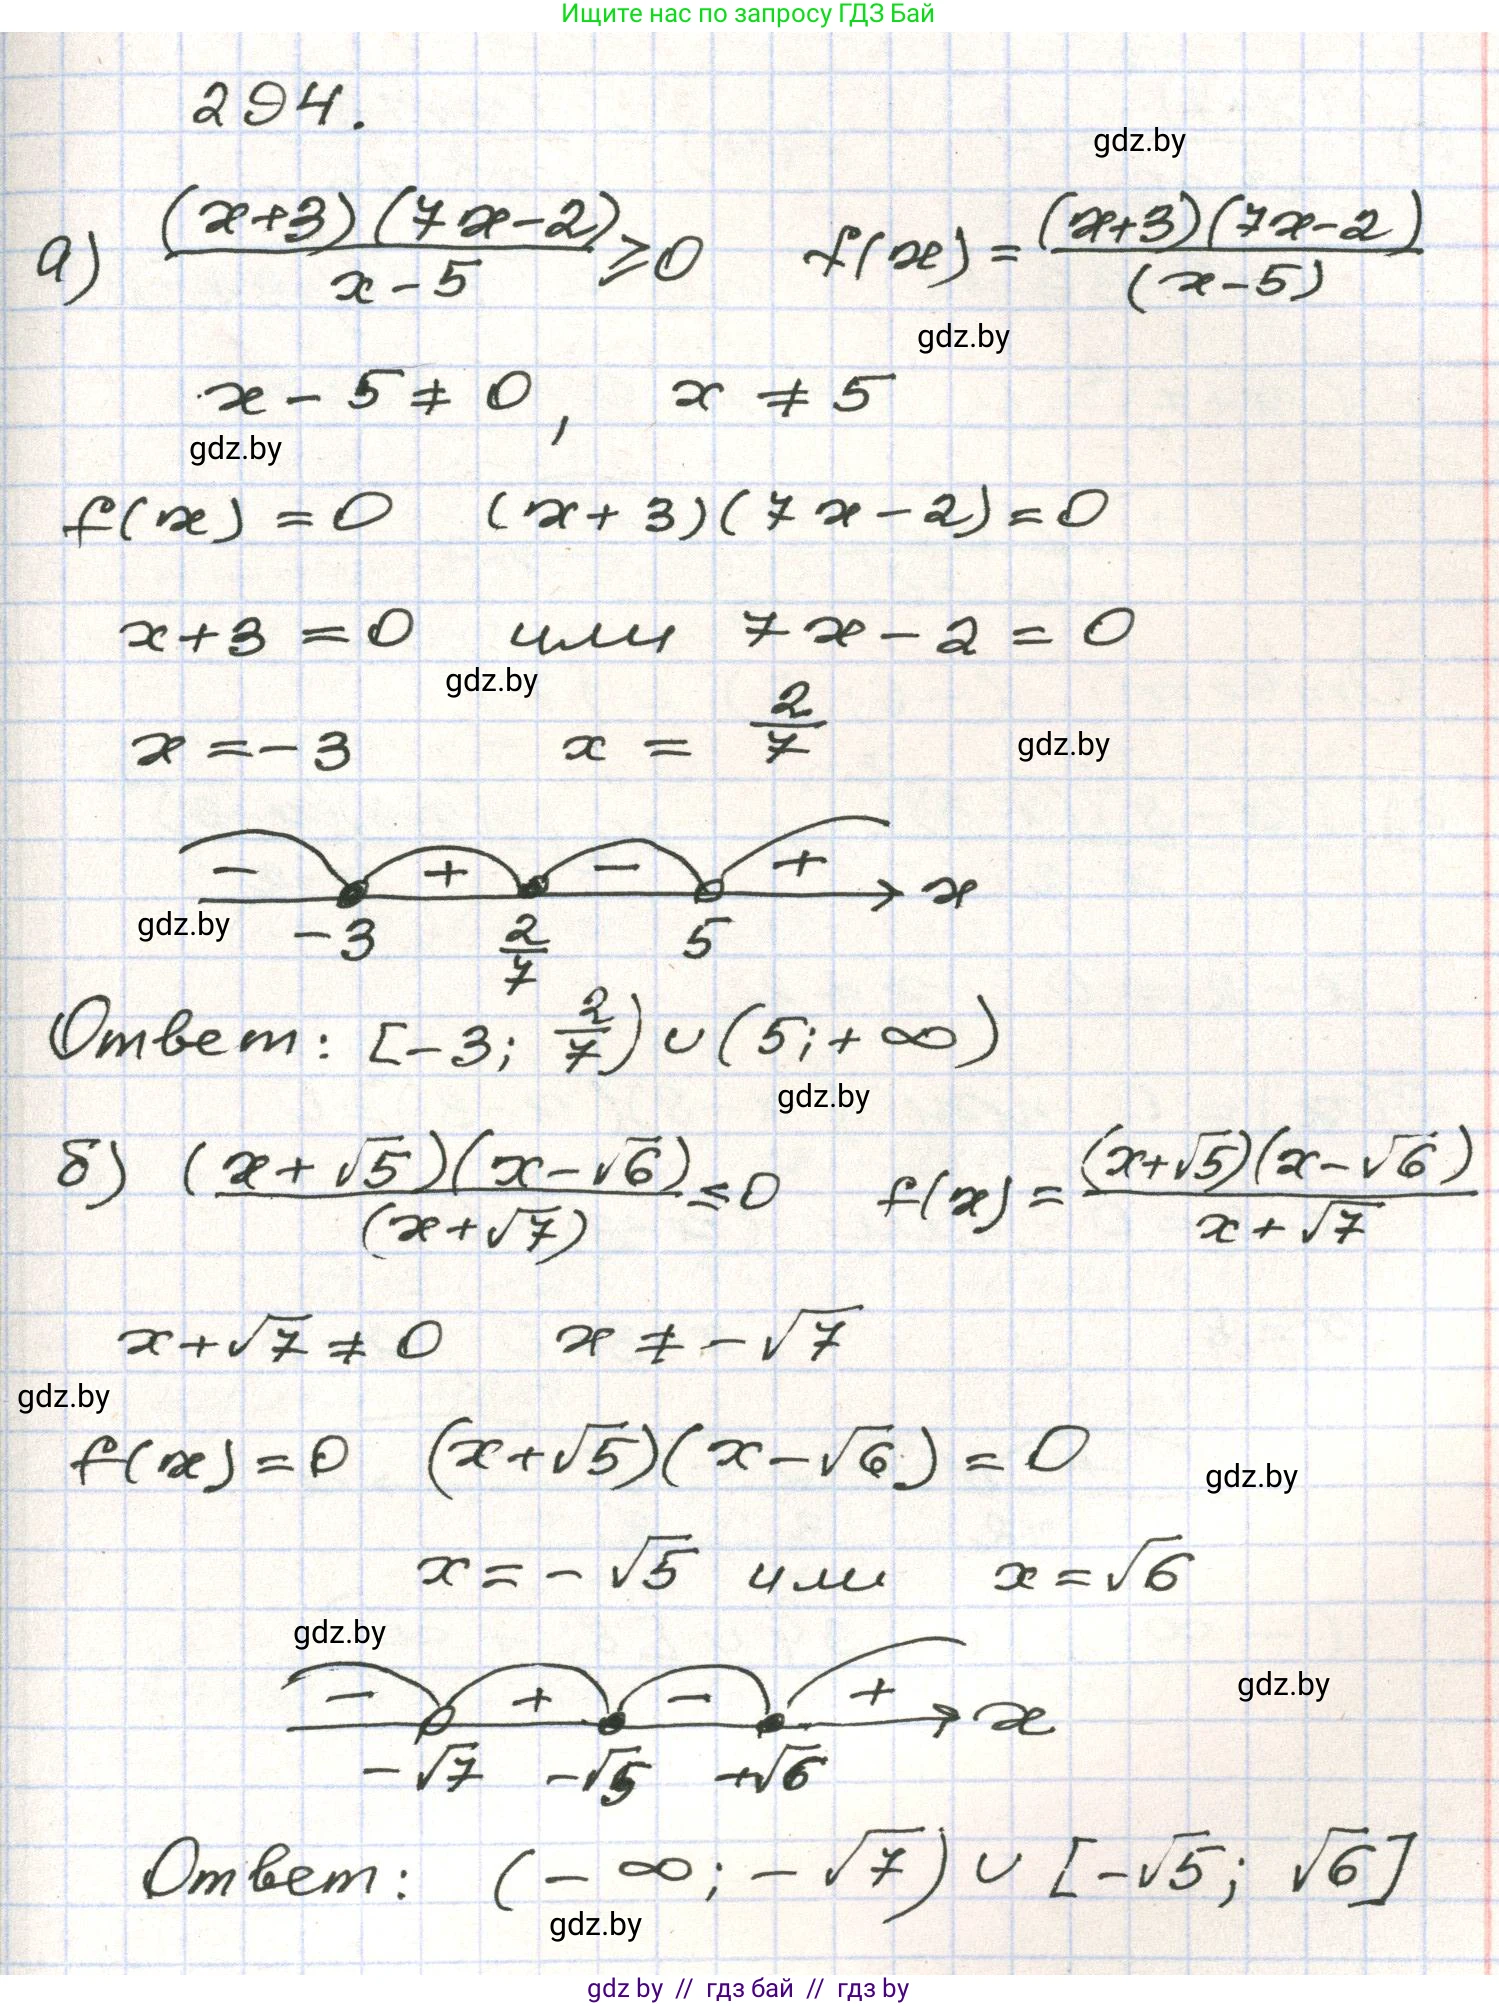 Ищите нас по запросу ГДЗ Бай
294.
gdz.by
а) (x+3)(7x-2)/(x-5) ≥ 0 f(x) = (x+3)(7x-2)/(x-5)
gdz.by
x - 5 ≠ 0, x ≠ 5
gdz.by
f(x) = 0 (x+3)(7x-2) = 0
x+3 = 0 или 7x-2 = 0
gdz.by
x = -3 x = 2/7
gdz.by
- + - + x
gdz.by
-3 2/7 5
Ответ: [-3; 2/7) ∪ (5; +∞)
gdz.by
б) (x+√5)(x-√6)/(x+√7) ≤ 0 f(x) = (x+√5)(x-√6)/(x+√7)
x+√7 ≠ 0 x ≠ -√7
gdz.by
f(x) = 0 (x+√5)(x-√6) = 0
gdz.by
x = -√5 или x = √6
gdz.by
- + - + x
gdz.by
-√7 -√5 +√6
Ответ: (-∞; -√7) ∪ [-√5; √6]
gdz.by
gdz.by // гдз бай // гдз by